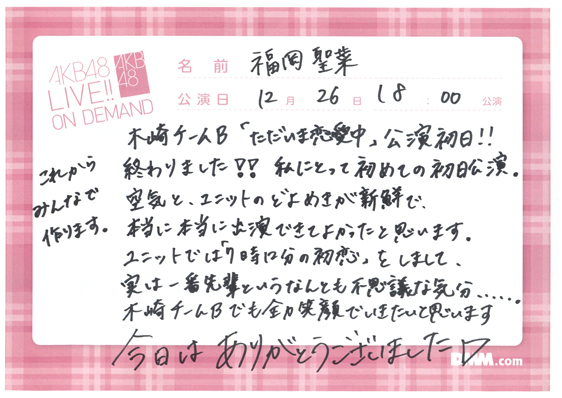 AKB48
LIVE!!
ON DEMAND
AKB
48
名前 福岡聖菜
公演日 12月 26日 18:00 公演
木崎チームB「ただいま恋愛中」公演初日!!
終わりました!! 私にとって初めての初日公演。
空気と、ユニットのどよめきが新鮮で、
本当に本当に出演できてよかったと思います。
ユニットでは「7時12分の初恋」をしまして、
実は一番先輩というなんとも不思議な気分......
木崎チームBでも全力笑顔でいきたいと思います
これから
みんなで
作ります。
今日はありがとうございました
DMM.com